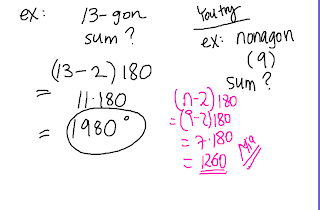 ex: 13-gon
sum?
(13-2)180
= 11·180
= 1980°
You try
ex: nonagon
(9)
sum?
(n-2)180
=(9-2)180
= 7·180
= 1260